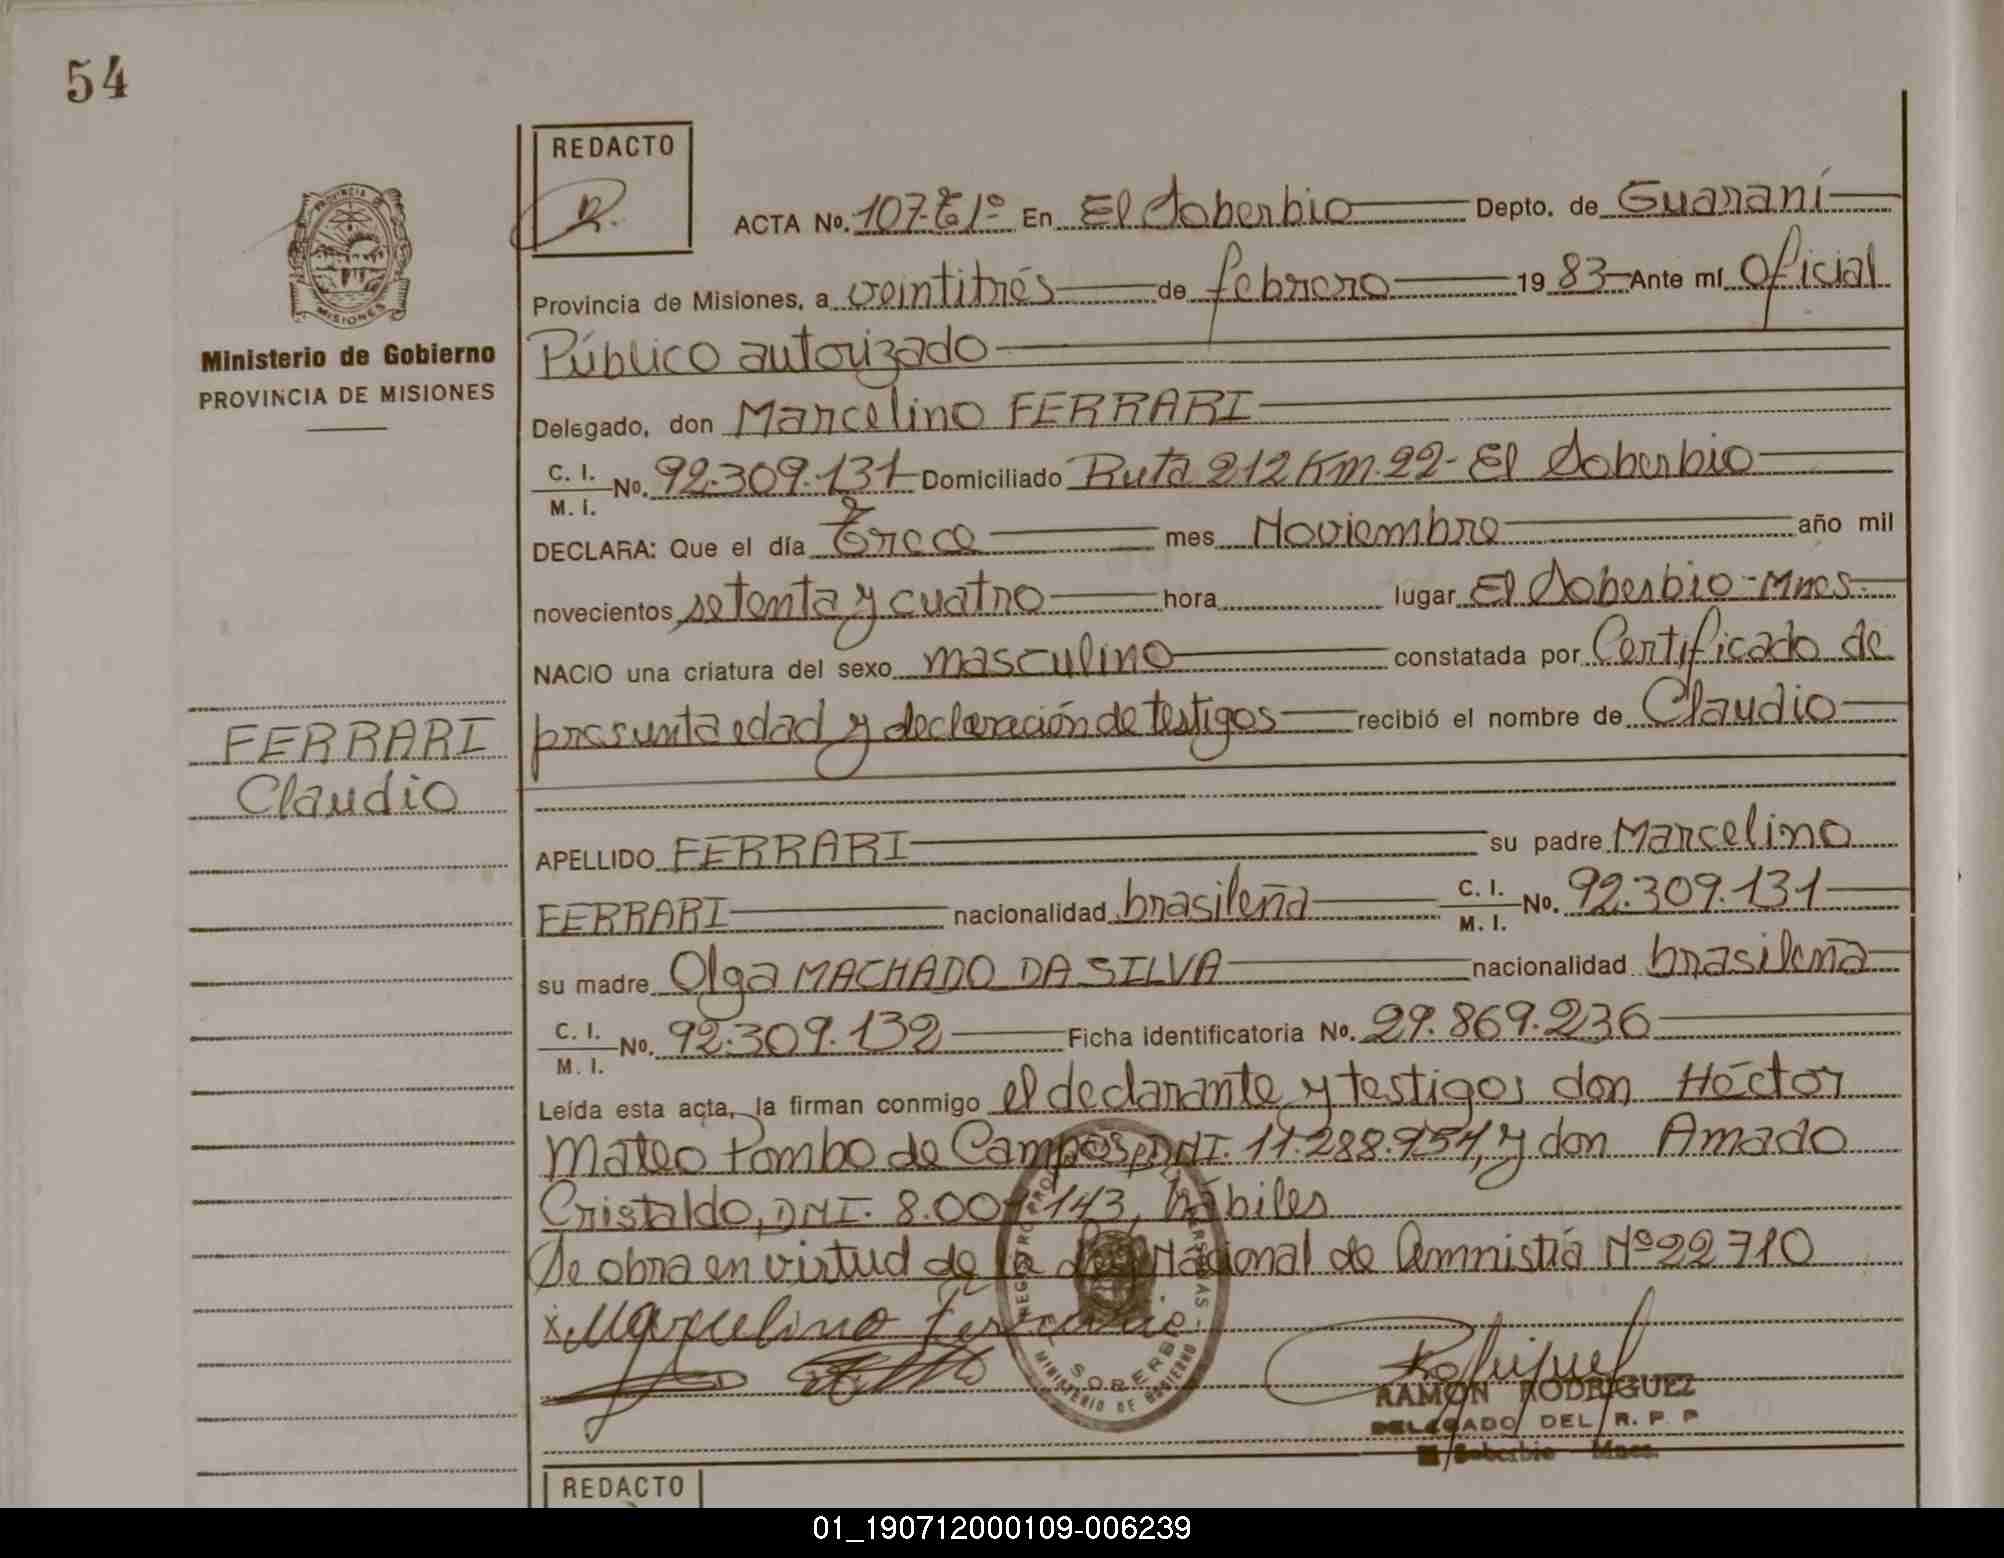 54
REDACTO
R.
ACTA No. 107-Tº1º En El Soberbio Depto. de Guaraní
Provincia de Misiones, a veintitrés de febrero 19 83 Ante mí Oficial
PROVINCIA DE
MISIONES
Ministerio de Gobierno
PROVINCIA DE MISIONES
Público autorizado
Delegado, don Marcelino FERRARI
C. I.
M. I. No. 92.309.131 Domiciliado Ruta 212 Km. 22- El Soberbio
DECLARA: Que el día Trece mes Noviembre año mil
novecientos setenta y cuatro hora lugar El Soberbio-Mnes.
NACIO una criatura del sexo masculino constatada por Certificado de
presunta edad y declaración de testigos recibió el nombre de Claudio
FERRARI
Claudio
APELLIDO FERRARI su padre Marcelino
FERRARI nacionalidad brasileña C. I.
M. I. No. 92.309.131
su madre Olga MACHADO DA SILVA nacionalidad brasileña
C. I.
M. I. No. 92.309.132 Ficha identificatoria No. 29.869.236
Leída esta acta, la firman conmigo el declarante y testigos don Héctor
Mateo Pombo de Campos, DNI. 11.288.954, y don Amado
Cristaldo, DNI. 8.007.143, hábiles
Se obra en virtud de la Ley Nacional de Amnistía Nº 22710
x Marcelino Ferrari
SOBERB
MINISTERIO DE GOBIERNO
RAMON RODRIGUEZ
DELEGADO DEL R. P. P
El Soberbio Mnes.
REDACTO
01_190712000109-006239